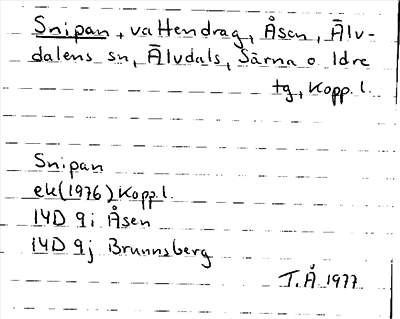 Snipan, vattendrag, Åsen, Älv-
dalens sn, Älvdals, Särna o. Idre
tg, Kopp. l.
Snipan
ek(1976) Kopp.l.
14D 9i Åsen
14D 9j Brunnsberg
T.Å 1977